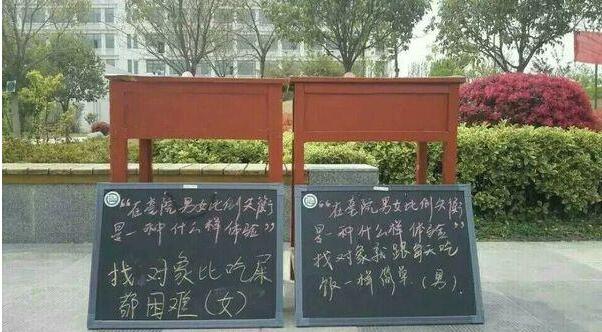 “在嘉院男女比例失衡
是一种什么样体验”
找对象比吃屎
都困难（女）
“在嘉院男女比例失衡
是一种什么样体验”
找对象就跟每天吃
饭一样简单（男）.